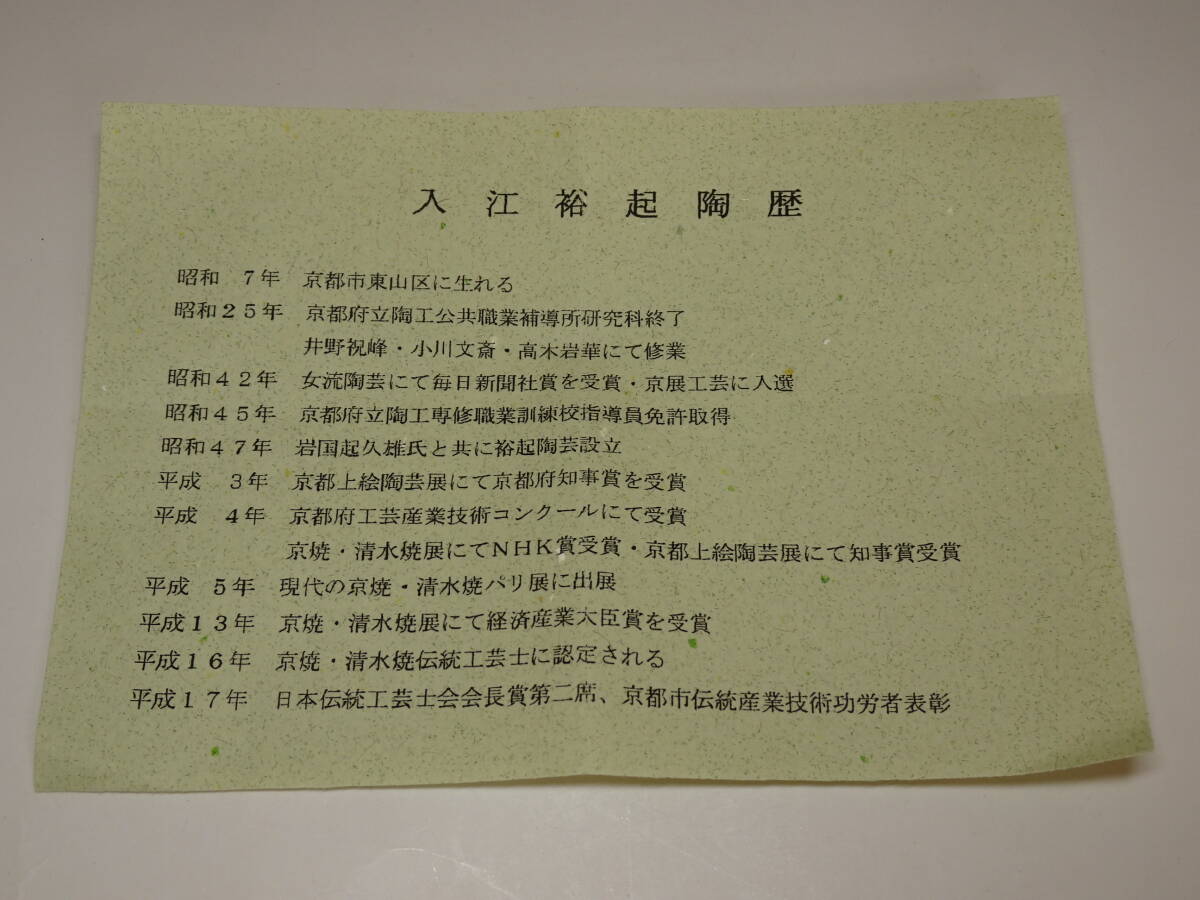 入江裕起陶歴
昭和　７年　京都市東山区に生れる
昭和２５年　京都府立陶工公共職業補導所研究科終了
井野祝峰・小川文斎・高木岩華にて修業
昭和４２年　女流陶芸にて毎日新聞社賞を受賞・京展工芸に入選
昭和４５年　京都府立陶工専修職業訓練校指導員免許取得
昭和４７年　岩国起久雄氏と共に裕起陶芸設立
平成　３年　京都上絵陶芸展にて京都府知事賞を受賞
平成　４年　京都府工芸産業技術コンクールにて受賞
京焼・清水焼展にてＮＨＫ賞受賞・京都上絵陶芸展にて知事賞受賞
平成　５年　現代の京焼・清水焼パリ展に出展
平成１３年　京焼・清水焼展にて経済産業大臣賞を受賞
平成１６年　京焼・清水焼伝統工芸士に認定される
平成１７年　日本伝統工芸士会会長賞第二席、京都市伝統産業技術功労者表彰